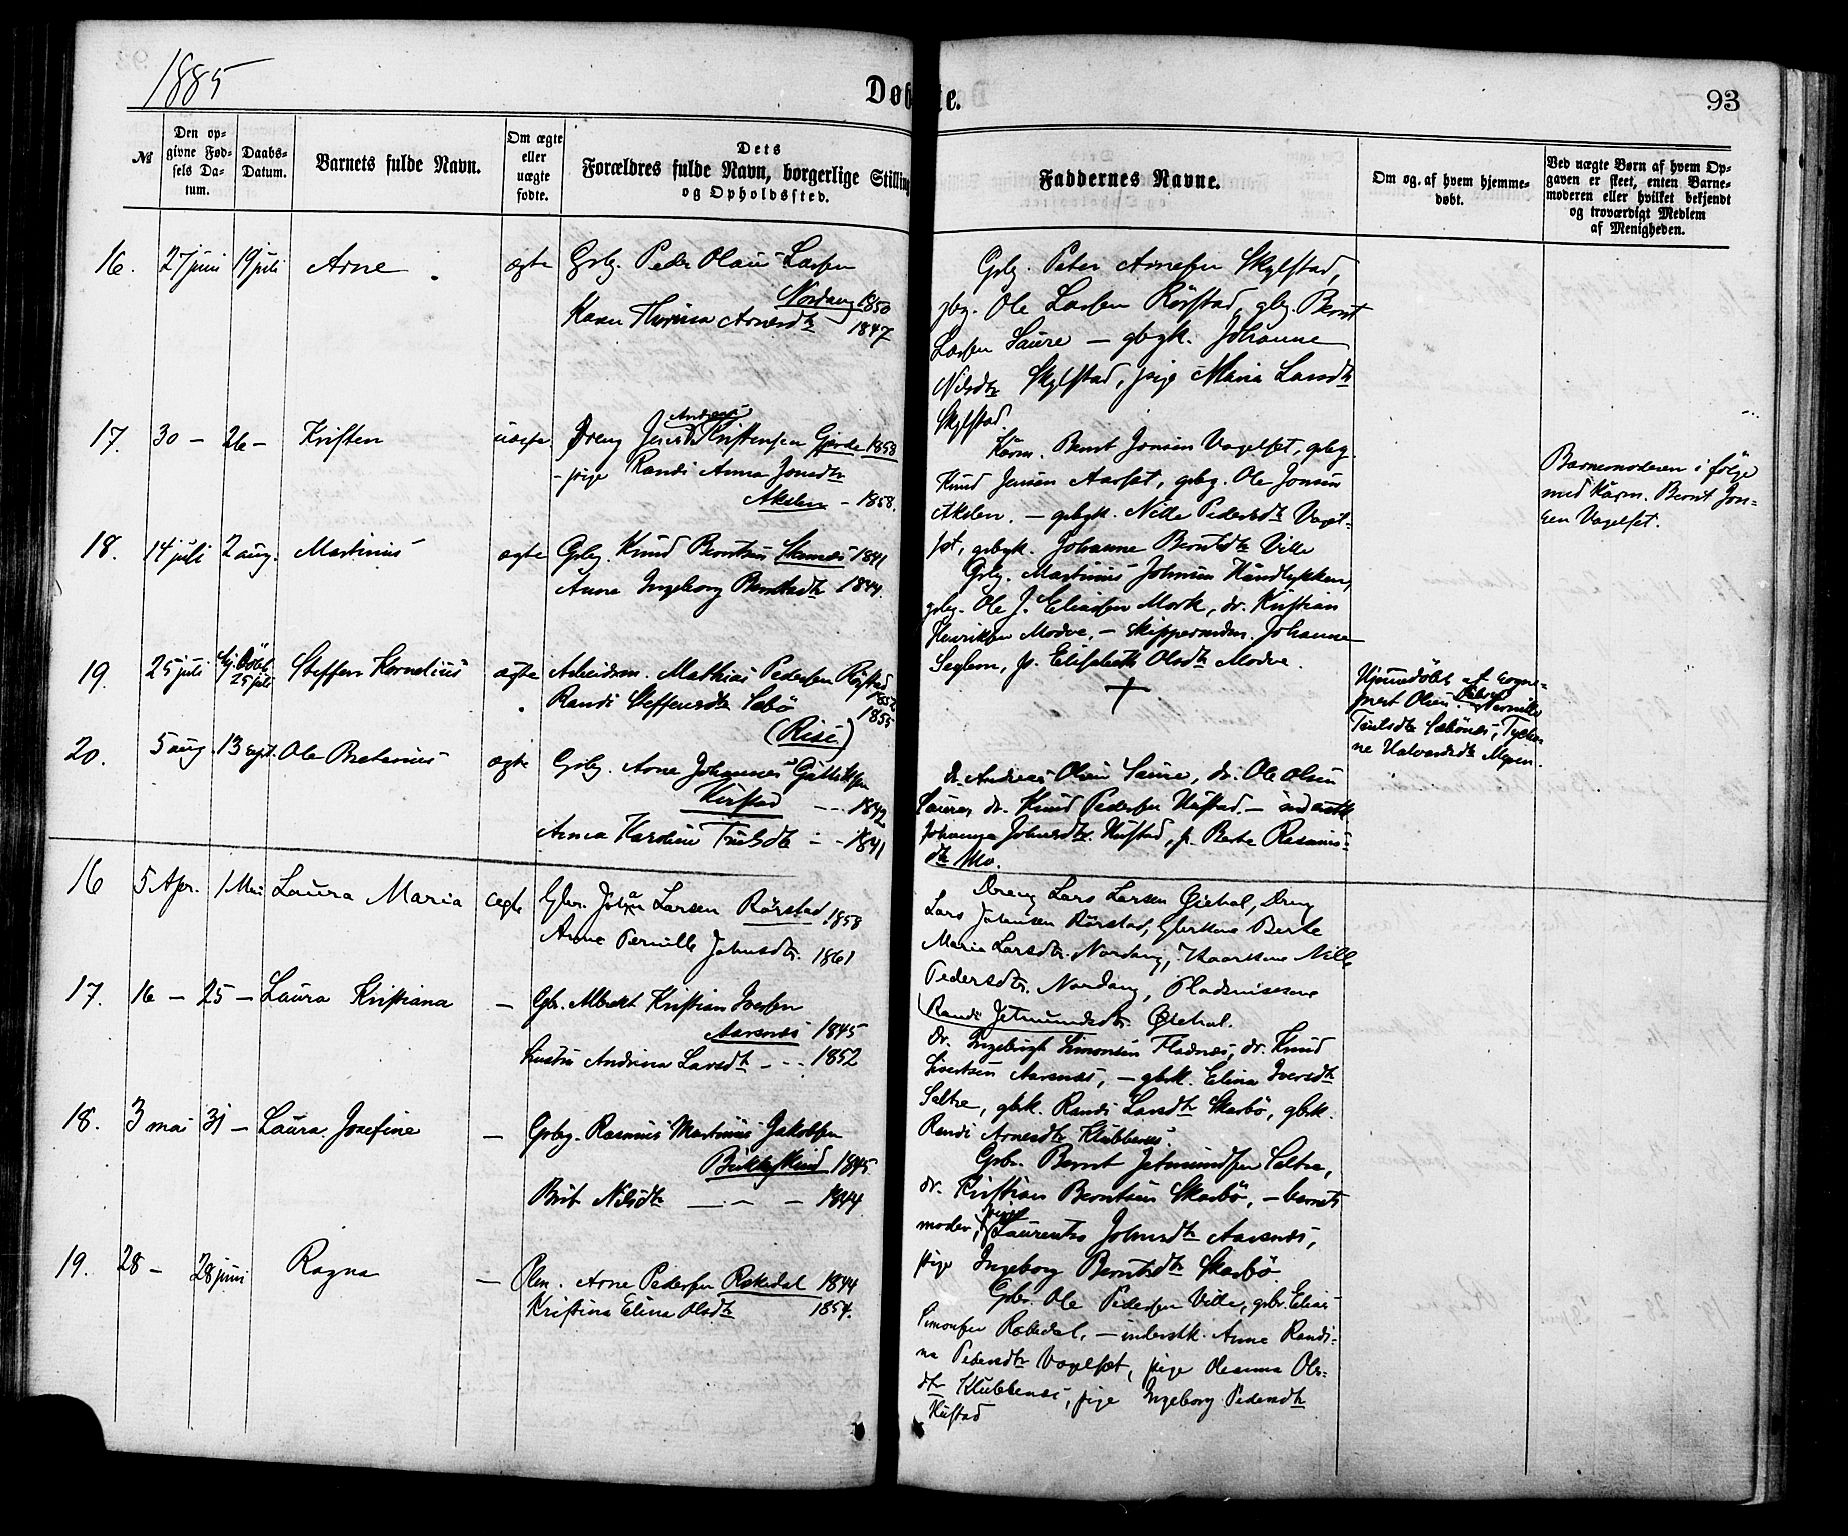 1885
Døbte.
93
№
Den op-
givne Fød-
sels Da-
tum.
Daabs-
Datum.
Barnets fulde Navn.
Om ægte
eller
uægte
fødte.
Dets
Forældres fulde Navn, borgerlige Stilling
og Opholdssted.
Faddernes Navne.
Om og af hvem hjemme-
døbt.
Ved uægte Børn af hvem Op-
gaven er skeet, enten Barne-
moderen eller hvilket bekjendt
og troværdigt Medlem
af Menigheden.
16. 27 juni 19 juli Arne ægte Grbg. Peder Olaus Larsen
Nordang 1850
Karen Arnesdtr 1847
Grbg. Peter Arnesen Skylstad,
gbg. Ole Larsen Rørstad, gbg. Bernt
Larsen Saure — gbgk. Johanne
Nilsdtr Skylstad, pige Maria Larsdtr
Skylstad.
17. 30 — 26 — Kristen uægte Dreng Andreas Kristensen Gjerde 1858
- pige Randi Anna Jonsdtr
Akslen - 1858.
Kårm. Bernt Jonsen Vagelset, grbg.
Knud Jensen Aarset, grbg. Ole Jonsen
Akslen. — gbgk. Nille Pedersdtr Vagel-
set, grbgk. Johanne Berntsdtr Ville
Barnemoderen i følge
med Kårm. Bernt Jon-
sen Vagelset.
18. 14 juli 2 aug. Martinus ægte Grbg. Knud Berntsen 1841
Anne Ingeborg Berntsdtr 1844.
Grbg. Martinus Johnsen Handlykken,
grbg. Ole J. Eliassen Mork, dr. Kristian
Henriksen Modve, — Johanne
Seglem, p. Elisabeth Olsdtr Modve.
19. 25 juli Hj. Døbt
25 juli Steffen Kornelius ægte Arbeidsm. Mathias Pedersen Rørstad
1852
Randi Steffensdtr Sæbø 1855
(Risa.)
Hjemmedøbt af Sogne-
prest Olsen. Pernille
Truelsdtr Sæbønes,
ne Halvorsdtr
20. 5 aug. 13 sept. Ole Bretenius ægte Grbg. Arne Johannes
Hustad - - - 1842
Anna Karoline Truelsdtr - - 1841
Dr. Andreas Olsen Saure, dr. Ole Olsen
Saure, dr. Knud Pedersen Hustad. —
Johanne Johnsdtr Hustad, p. Berte Rasmus-
dtr Mo.
16 5 Apr. 1 Mai Laura Maria ægte Gbr. Johan Larsen Rørstad 1858
Anne Pernille Johnsdtr. 1861
Dreng Lars Larsen Øiehal, Dreng
Lars Johansen Rørstad, Gbrkone Berte
Marie Larsdtr. Nordang, Kaarkone Nille
Pedersdtr. Nordang,
Randi Jetmundsdtr. Øiehal.
17. 16 — 25 — Laura Kristiana — Gbr. Albrekt Kristian Iversen
Aarsnes 1845
Hustru Andrina Larsdtr - - - 1852
Dr. Ingebrigt Simonsen Fladnes, dr. Knud
Sivertsen Aarsnes, — gbrk. Elina Iversdtr
Saltre, gbrk. Randi Larsdtr Skarbø, gbrk.
Randi Arnesdtr Klubbenes.
18. 3 mai 31 — Laura Josefine — Grbg. Rasmus Martinus Jakobsen
1845
Brit Nilsdtr — — — 1844
Gbr. Bernt Jetmundsen Saltre,
dr. Kristian Berntsen Skarbø, — barnets
moder, pige Laurentse Johnsdtr Aarsnes,
pige Ingeborg Berntsdtr Skarbø.
19. 28 — 28 juni Ragna — Plm. Arne Pedersen Rekedal 1844
Kristine Elina Olsdtr 1854.
Gbr. Ole Pedersen Ville, gbr. Elias
Simonsen Rekedal, — inderstk. Anne Randi-
na Pedersdtr Vagelset, pige Olesanna Ols-
dtr Klubbenes, pige Ingeborg Pedersdtr
Hustad